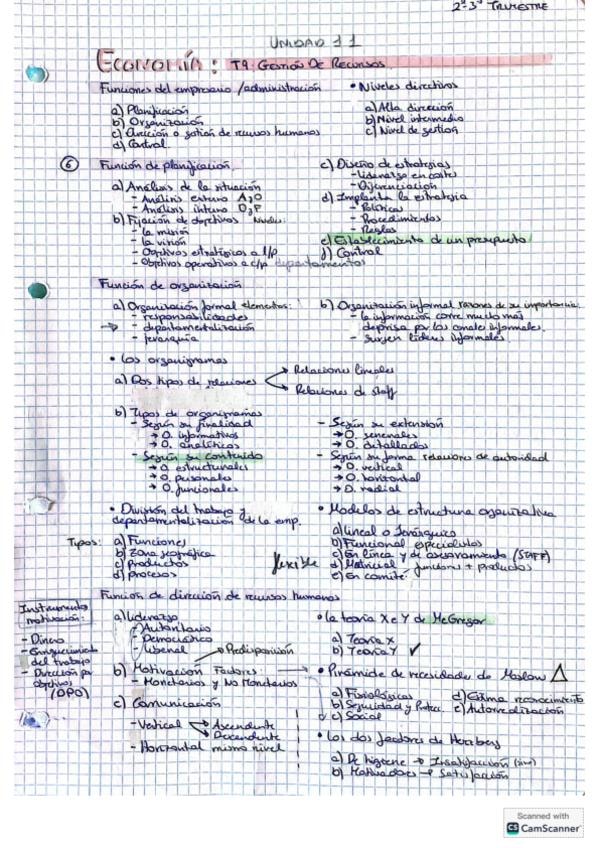 2º-3º TRIMESTRE
UNIDAD 11
ECONOMÍA: T9. GESTIÓN DE RECURSOS
Funciones del empresario / administración
• Niveles directivos
a) Planificación
b) Organización
c) Dirección o gestión de recursos humanos
d) Control
a) Alta dirección
b) Nivel intermedio
c) Nivel de gestión
6
Función de planificación
a) Análisis de la situación
- Análisis externo A y O
- Análisis interno D y F
b) Fijación de objetivos Niveles:
- La misión
- La visión
- Objetivos estratégicos a l/p
- Objetivos operativos a c/p departamentos
c) Diseño de estrategias
- Liderazgo en costes
- Diferenciación
d) Implanta la estrategia
- Políticas
- Procedimientos
- Reglas
e) Establecimiento de un presupuesto
f) Control
Función de organización
a) Organización formal elementos:
- responsabilidades
→ - departamentalización
- jerarquía
b) Organización informal razones de su importancia:
- la información corre mucho más
deprisa por los canales informales.
- surgen líderes informales.
• Los organigramas
a) Dos tipos de relaciones
Relaciones lineales
Relaciones de staff
b) Tipos de organigramas
- Según su finalidad
→ O. informativos
→ O. analíticos
- Según su contenido
→ O. estructurales
→ O. personales
→ O. funcionales
- Según su extensión
→ O. generales
→ O. detallados
- Según su forma relaciones de autoridad
→ O. vertical
→ O. horizontal
→ O. radial
• División del trabajo y
departamentalización de la emp.
Tipos:
a) Funciones
b) Zona geográfica
c) Productos
d) procesos
flexible
• Modelos de estructura organizativa
a) lineal o Jerárquico
b) Funcional especialistas
c) En línea y de asesoramiento (STAFF)
d) Matricial - funciones + productos
e) En comité.
Función de dirección de recursos humanos
Instrumento
motivación:
- Dinero
- Enriquecimiento
del trabajo
- Dirección por
objetivos
(DPO)
a) Liderazgo
- Autoritario
- Democrático
- Liberal
Predisposición
b) Motivación Factores
- Monetarios y No Monetarios
c) Comunicación
- Vertical
Ascendente
Descendente
- Horizontal mismo nivel
• la teoría X e Y de McGregor
a) Teoría X
b) Teoría Y ✓
• Pirámide de necesidades de Maslow
a) Fisiológicas
b) Seguridad y Protec.
c) Social
d) Estima reconocimiento
e) Autorrealización
• Los dos factores de Herzberg
a) De higiene → Insatisfacción
b) Motivadores → Satisfacción
Scanned with
CS CamScanner